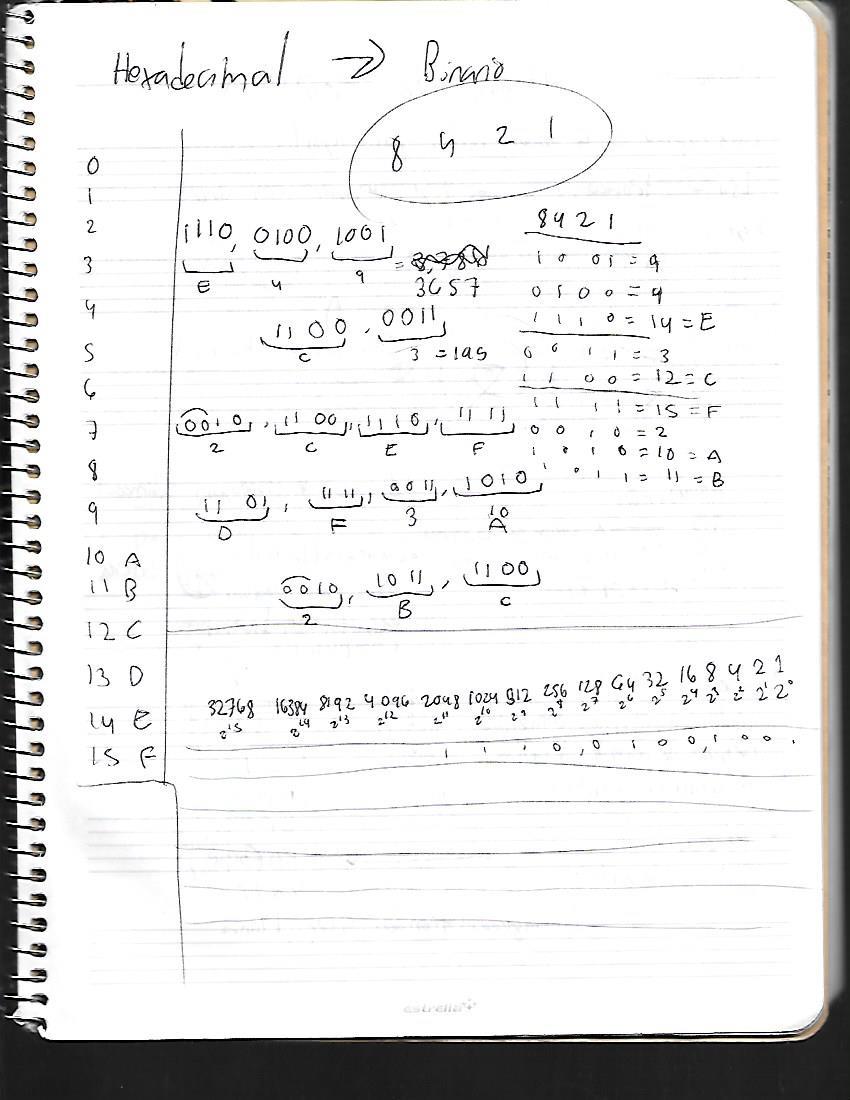 Hexadecimal → Binario
8 4 2 1
0
1
2
3
4
5
6
7
8
9
10 A
11 B
12 C
13 D
14 E
15 F
1110, 0100, 1001
E 4 9 =
3657
1100, 0011
C 3 = 195
0010, 1100, 1110, 1111
2 C E F
1101, 1111, 0011, 1010
D F 3 10
A
0010, 1011, 1100
2 B C
8421
1001 = 9
0100 = 4
1110 = 14 = E
0011 = 3
1100 = 12 = C
1111 = 15 = F
0010 = 2
1010 = 10 = A
1011 = 11 = B
32768 16384 8192 4096 2048 1024 512 256 128 64 32 16 8 4 2 1
2¹⁵ 2¹⁴ 2¹³ 2¹² 2¹¹ 2¹⁰ 2⁹ 2⁸ 2⁷ 2⁶ 2⁵ 2⁴ 2³ 2² 2¹ 2⁰
1 1 1 0, 0 1 0 0, 1 0 0 1
estrella